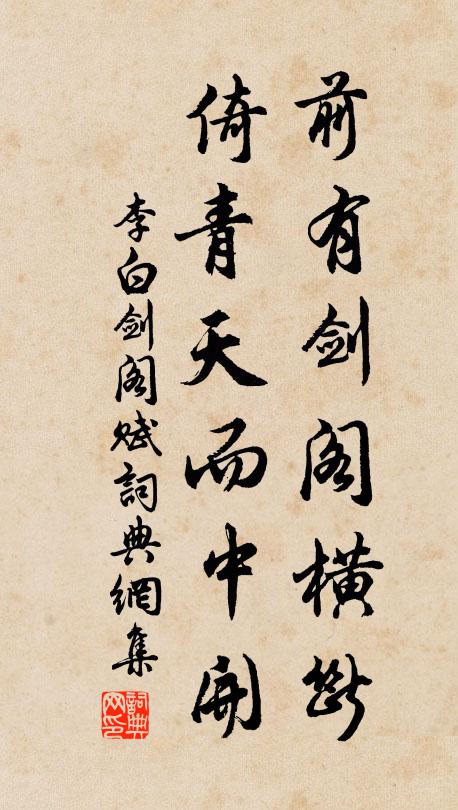 前有剑阁横断
倚青天而中開
李白剑阁赋詞典網集
詞典网印